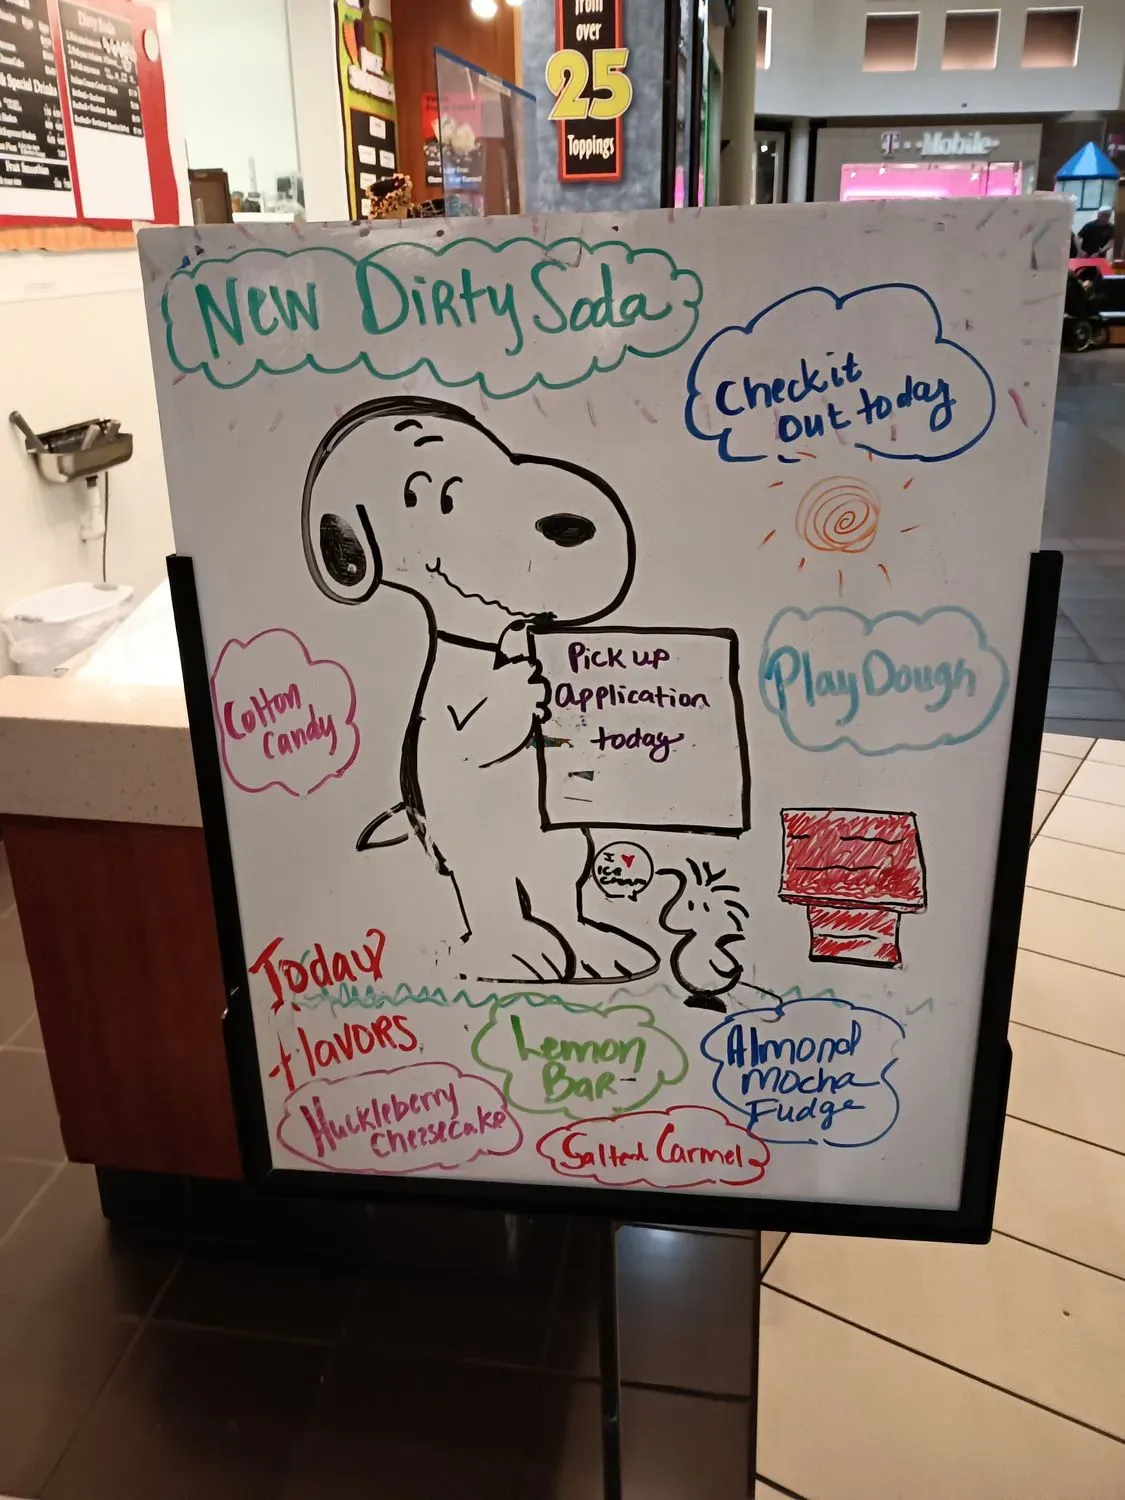 from
over
25
Toppings
Dirty Soda
T Mobile
New Dirty Soda
Check it
out today
Pick up
application
today
Play Dough
Cotton
Candy
I ♥
ice
cream
Today
flavors
Lemon
Bar
Almond
mocha
Fudge
Huckleberry
Cheesecake
Salted Carmel